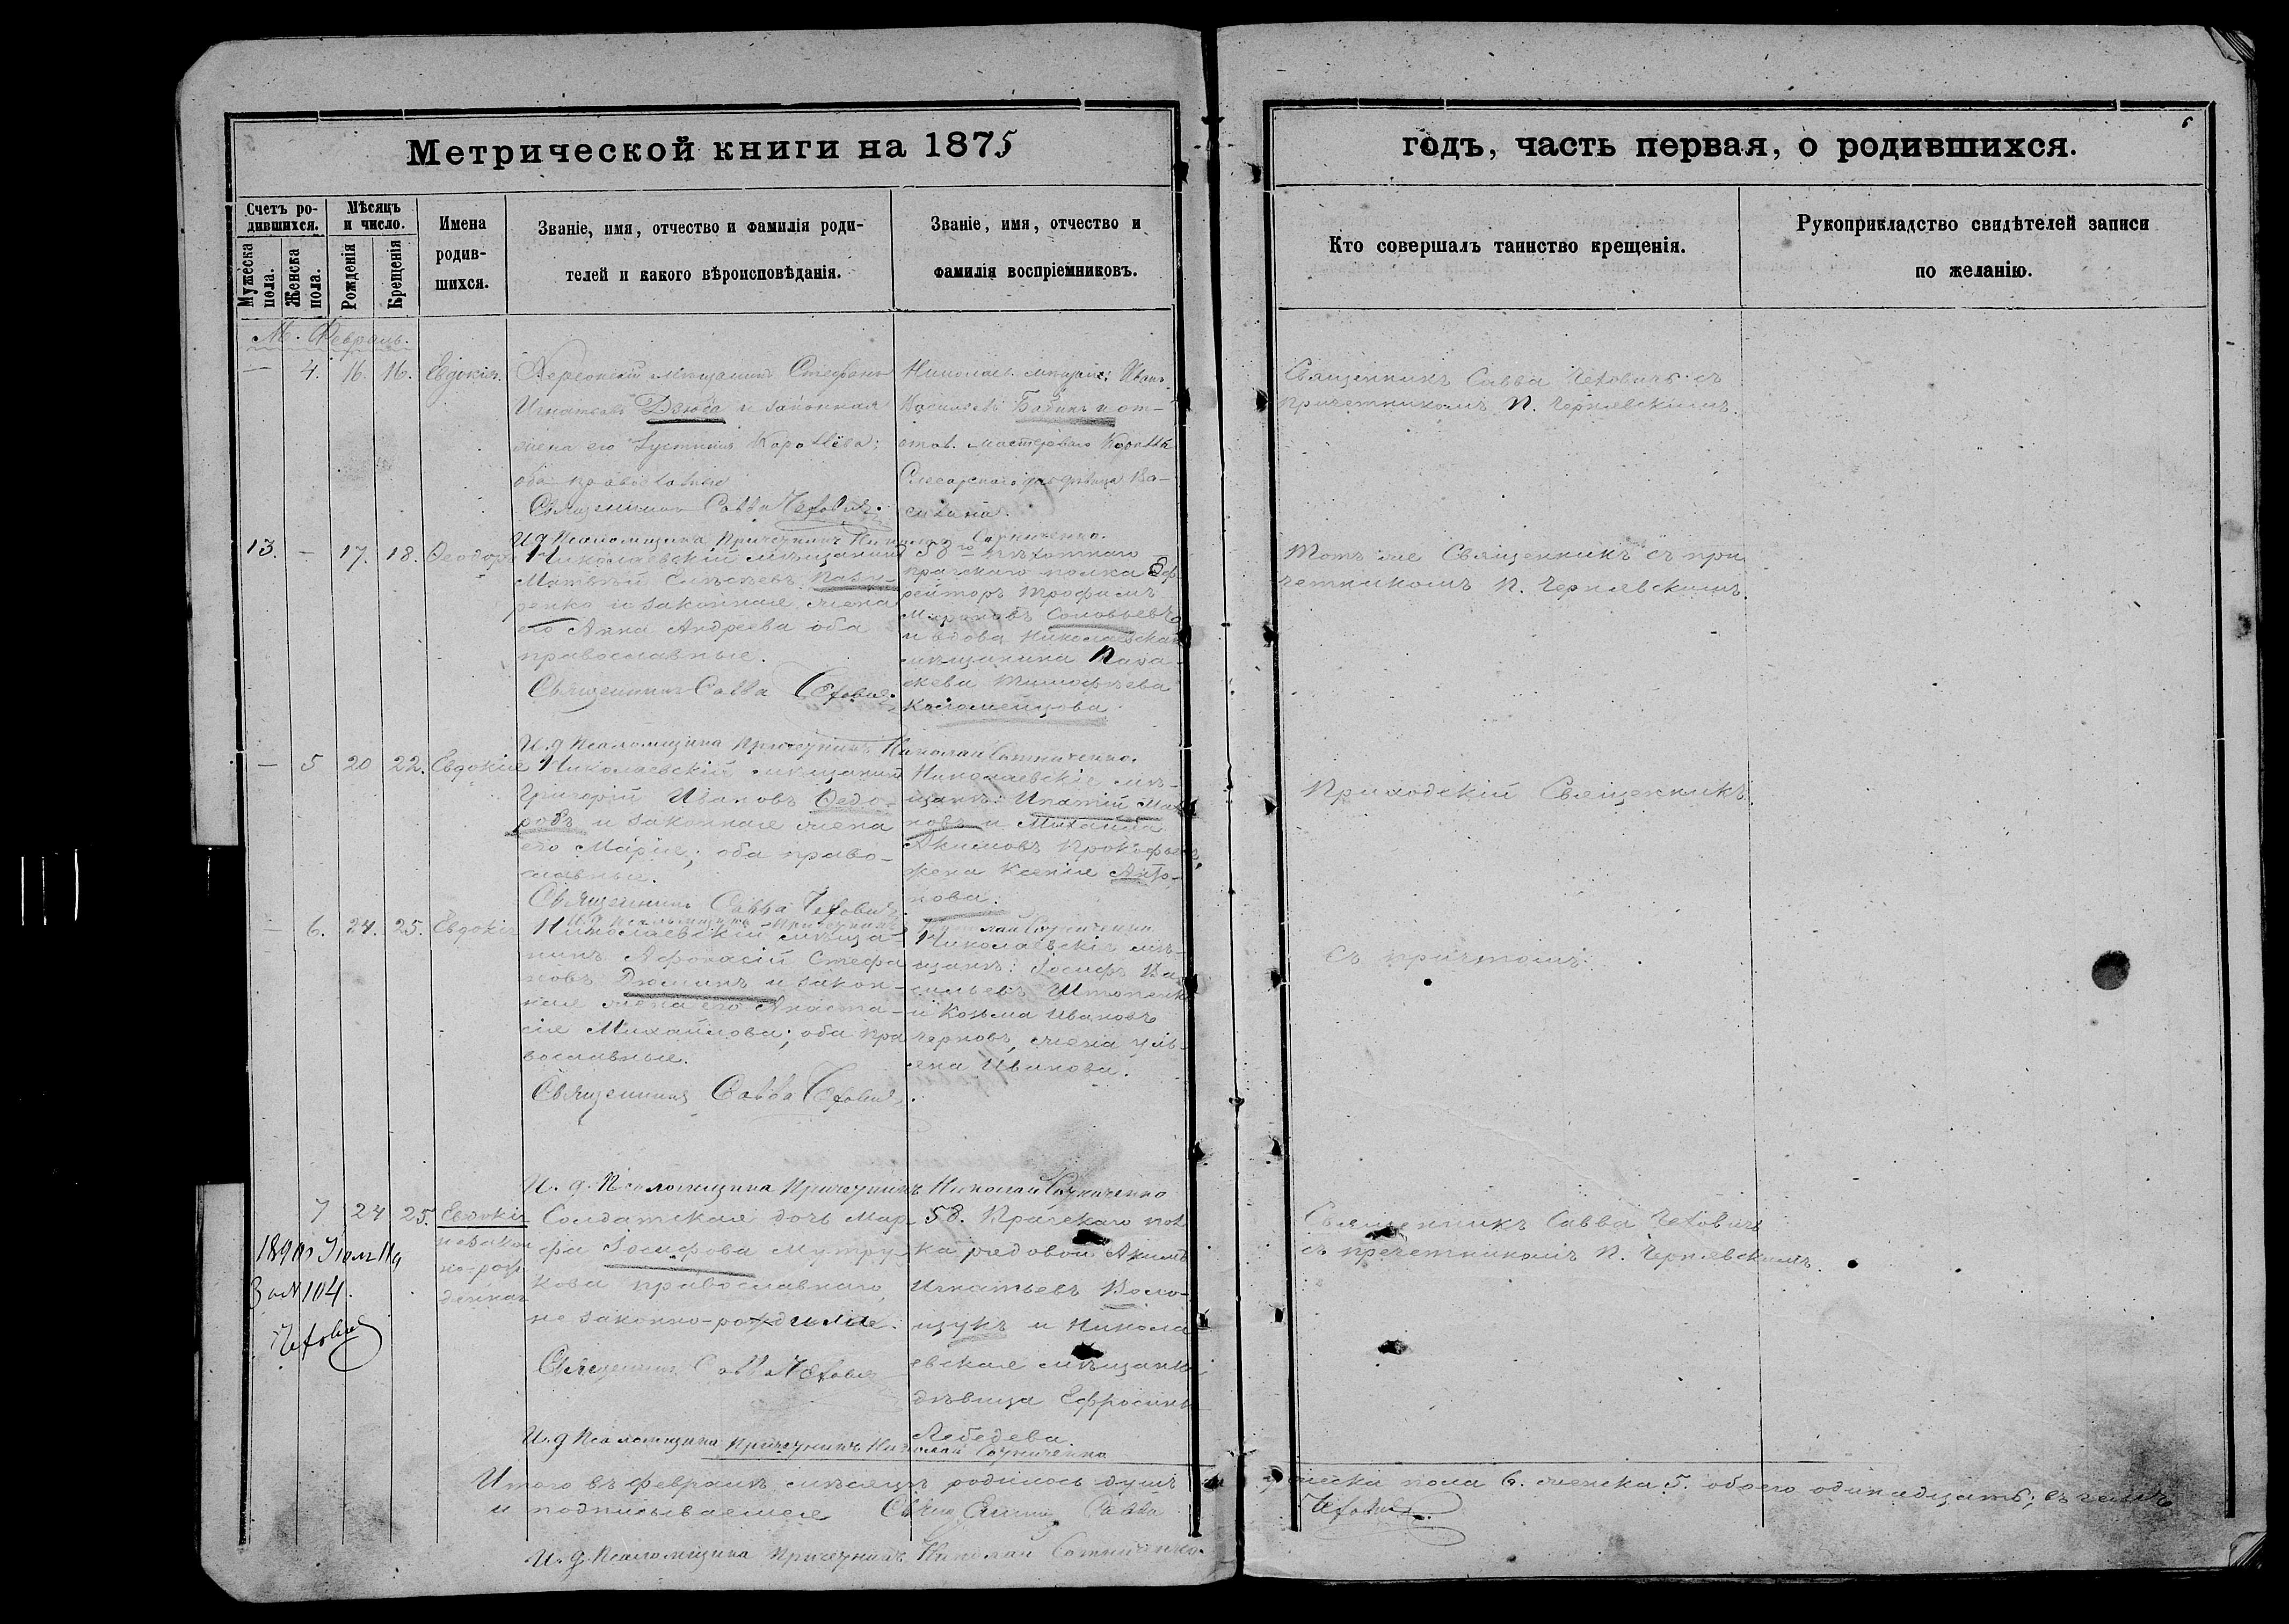 Метрической книги на 1875
годъ, часть первая, о родившихся.
6
Счетъ ро-
дившихся.
Мужеска
пола.
Женска
пола.
Мѣсяцъ
и число.
Рожденія
Крещенія
Имена
родив-
шихся.
Званіе, имя, отчество и фамилія роди-
телей и какого вѣроисповѣданія.
Званіе, имя, отчество и
фамилія воспріемниковъ.
Кто совершалъ таинство крещенія.
Рукоприкладство свидѣтелей записи
по желанію.
М. Февраль.
— 4. 16. 16. Евдокія.
Херсонскій мѣщанинъ Стефанъ
Игнатьевъ Дзюба и законная
жена его Іустина
оба православные
Священникъ Савва Чехович.
Иванъ
Васильевъ Бабинъ и от-
став. мастероваго
Слесарскаго Ва-
Священникъ Савва Чеховичъ съ
причетникомъ П. Чернявскимъ.
И. д. Псаломщика Причетникъ
13. — 17. 18. Феодоръ
Николаевскій мѣщанинъ
Матвѣй
ренко и законная жена
его Анна Андреева оба
православные.
Священникъ Савва Чехович.
58го пѣхотнаго
пражскаго полка Еф-
рейторъ Трофимъ
Мироновъ Соловьевъ
и вдова Николаевская
мѣщанина Пара-
скева Тимофѣева
Коломейцова.
Тотъ же Священникъ съ при
четникомъ П. Чернявскимъ.
И. д. Псаломщика Причетникъ Николай Сотниченко.
— 5 20 22. Евдокія
Николаевскій мѣщанинъ
Григорій Ивановъ Федо-
ровъ и законная жена
его Марія; оба право-
славные.
Священникъ Савва Чехович
Николаевскіе мѣ-
щане: Игнатій
новъ и Михаила
Акимовъ Прокофьевъ,
жена Ксенія Анто-
нова.
Приходскій Священникъ
И. д. Псаломщика Причетникъ
— 6. 24. 25. Евдокія
Николаевскій мѣща-
нинъ Афонасій Стефа
новъ Дюминъ и закон-
ная жена его Анаста-
сія Михайлова; оба пра
вославные.
Священникъ Савва Чехович
Николаевскіе мѣ-
щане: Іосифъ Ва-
сильевъ
и Козьма Ивановъ
Черновъ, жена Уль-
яна Иванова.
съ причтомъ.
И. д. Псаломщика Причетникъ Николай Сотниченко
7 24 25. Евдокія
незакон
но-рож
денная
Солдатская дочь Мар-
фа Іосифова Мутру-
кова православнаго,
не законно-родила.
Священникъ Савва Чехович
58. Пражскаго пол
ка рядовой Акимъ
Игнатьевъ Воло-
щукъ и Никола
евская мѣщанка
дѣвица Ефросинья
Лебедева
Священникъ Савва Чеховичъ
съ причетникомъ П. Чернявскимъ.
За № 104.
Чехович
И. д. Псаломщика Причетникъ Николай Сотниченко
Итого въ февралѣ мѣсяцѣ родилось душъ
мужеска пола 6. женска 5. обоего одинадцать; въ чемъ
и подписываемся Священникъ Савва
Чехович.
И. д. Псаломщика Причетникъ Николай Сотниченко.